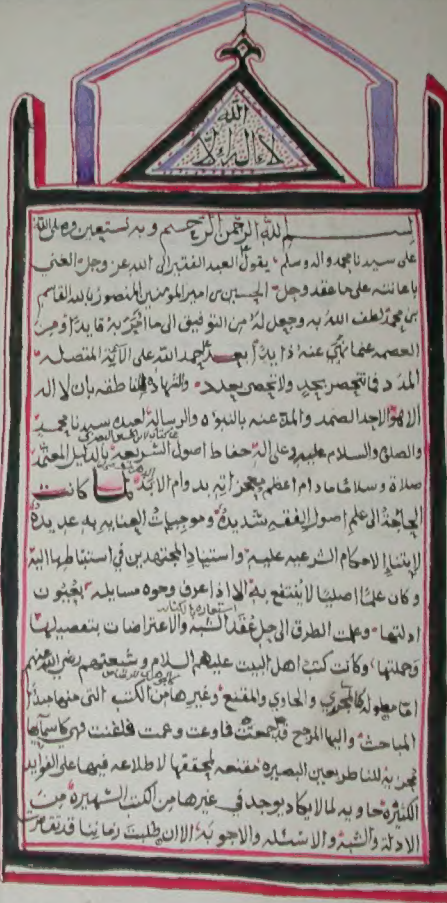 الله
لا اله الا
بسم الله الرحمن الرحيم وبه نستعين وصلى الله
على سيدنا محمد واله وسلم، يقول العبد الفقير الى الله عز وجل الغني
باعانته على ما عقد وحل الحسين بن امير المومنين المنصور بالله القاسم
بن محمد لطف الله به وجعل له من التوفيق الى ما امر به قايدا ومن
العصمه عما نهي عنه ذايدا بعد حمد الله على الآئه المتصله
المدد فما تنحصر بحد ولا تحصى بعدد والشهادة الناطقه بان لا اله
الا هو الاحد الصمد والمنة عنه بالنبوه والرسالة لعبده سيدنا محمد
والصلاة والسلام عليه وعلى اله حفاظ اصول الشريعة بالدليل المعتمد
صلاة وسلاما ما دام اعظم معجزاته بدوام الابد لما كانت
الحاجة الى علم اصول الفقه شديدة وموجبات العنايه به عديدة
لابتناء الاحكام الشرعيه عليه واستناد المجتهدين في استنباطها اليه
وكان علما اصليا لا ينتفع به الا اذا عرف وجوه مسايله بعيون
ادلتها وعلمت الطرق الى حل عقد الشبه والاعتراضات بتفصيلها
وجملتها، وكانت كتب اهل البيت عليهم السلام وشيعتهم رضي الله عنهم
اما مطوله كالمجزي والحاوي والمقنع وغيرها من الكتب التي منها مبدأ
المباحث واليها المرجع قد جمعت فاوعت وعمت فاغنت فهي كاسمآها
مجزية للناظر بعين البصيره مقنعه لمحققها لاطلاعه فيها على الفوايد
الكثيرة حاويه لما لا يكاد يوجد في غيرها من الكتب الشهيرة من
الادلة والشبه والاسئله والاجوبة الا ان طلبة زماننا قد تقاصرت